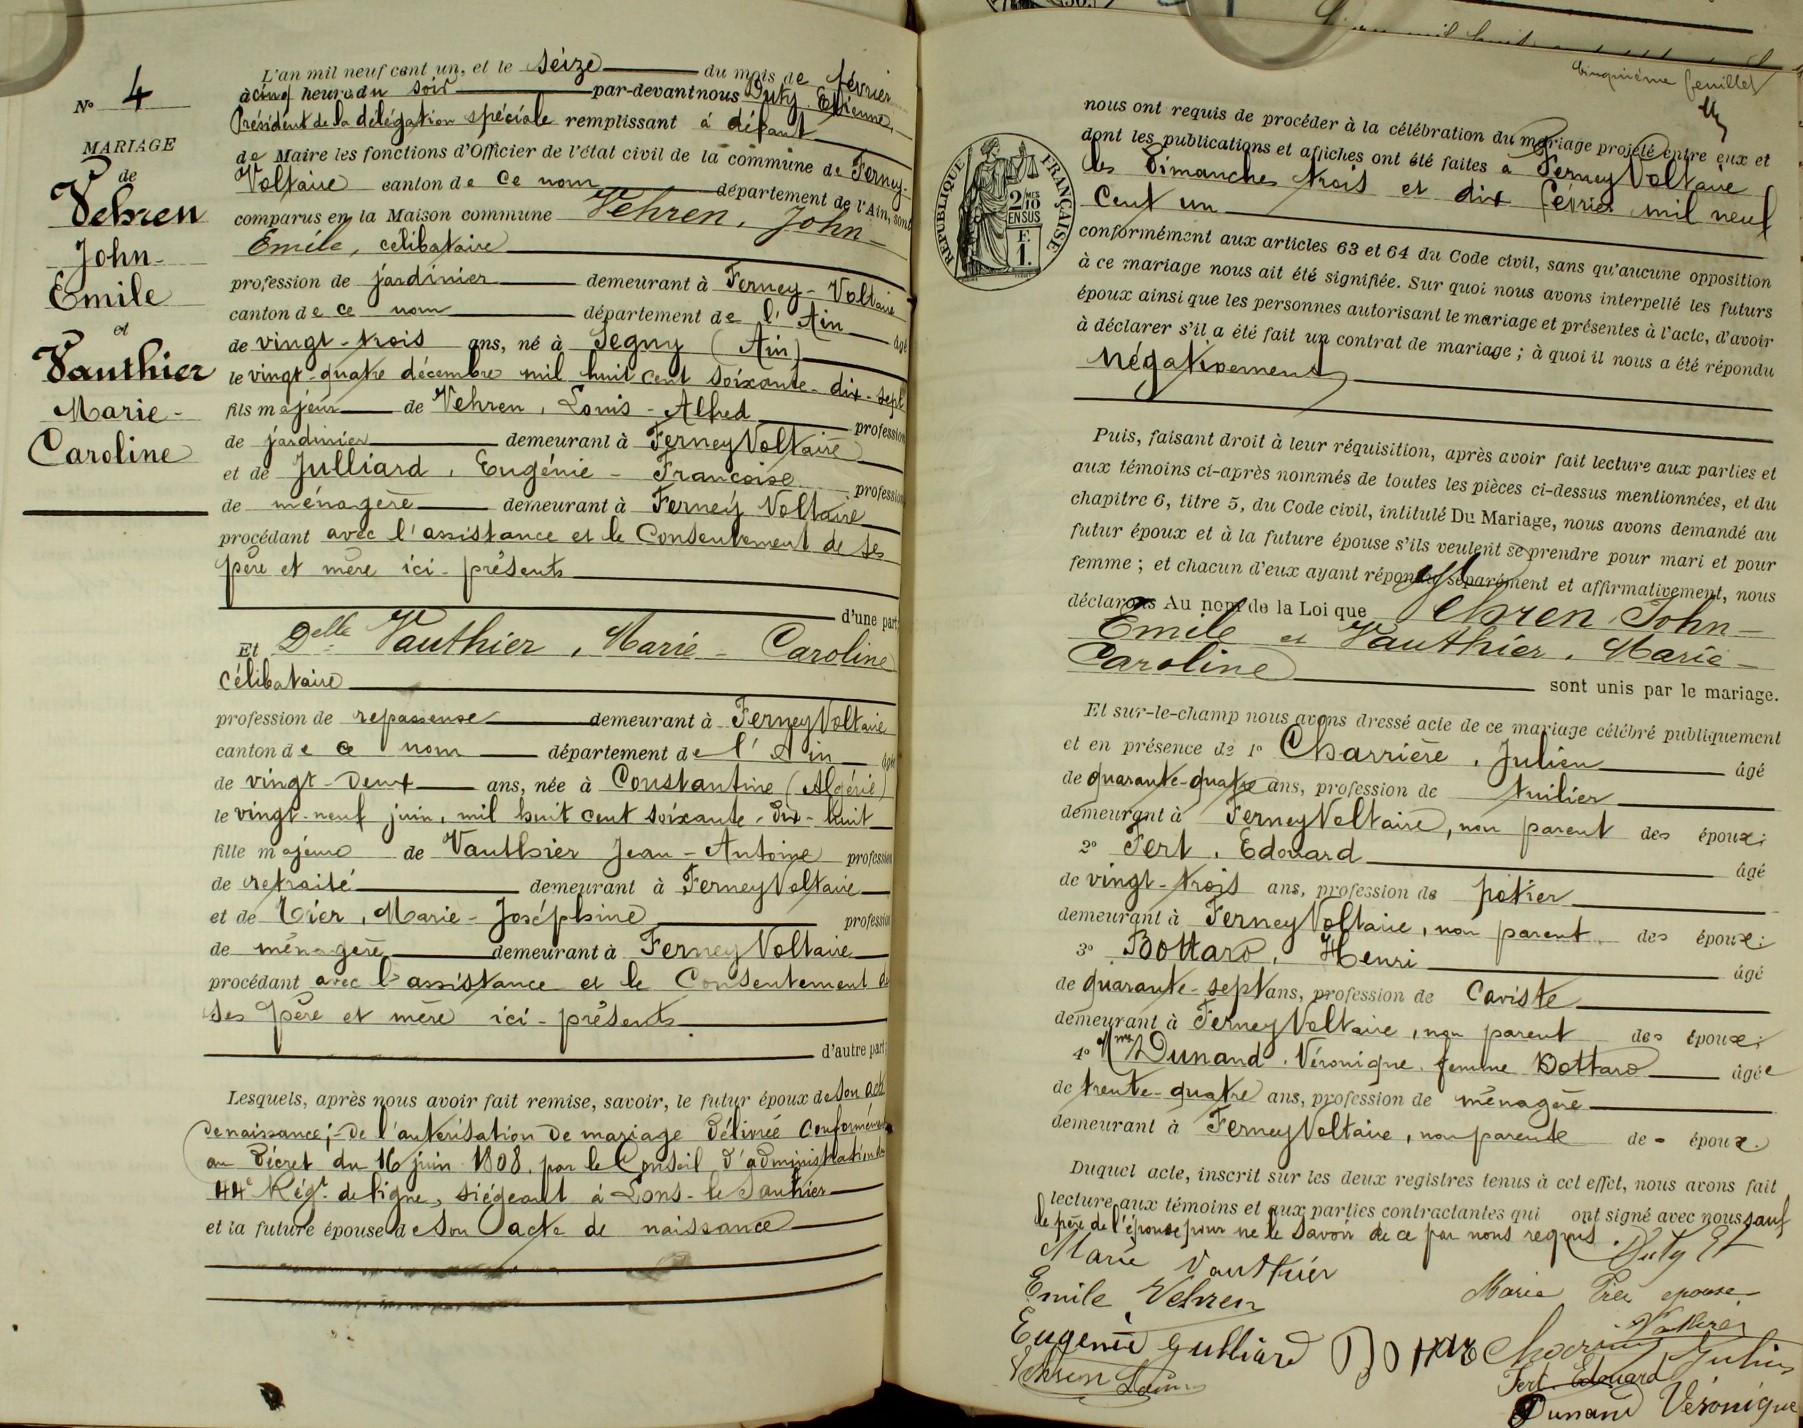 N° 4
MARIAGE
de
Vehren
John-
Emile
et
Vauthier
Marie-
Caroline
L'an mil neuf cent un, et le seize du mois de février
à cinq heures du soir par-devant nous Duty, Etienne,
Président de la délégation spéciale remplissant à défaut
de Maire les fonctions d'Officier de l'état civil de la commune de Ferney-
Voltaire canton de ce nom département de l'Ain, sont
comparus en la Maison commune Vehren, John-
Emile, célibataire
profession de jardinier demeurant à Ferney-Voltaire
canton de ce nom département de l'Ain âgé
de vingt-trois ans, né à Segny (Ain)
le vingt-quatre décembre mil huit cent soixante-dix-sept
fils majeur de Vehren, Louis-Alfred profession
de jardinier demeurant à Ferney Voltaire
et de Julliard, Eugénie-Françoise profession
de ménagère demeurant à Ferney Voltaire
procédant avec l'assistance et le Consentement de ses
père et mère ici-présents
d'une part
Et Delle Vauthier, Marie-Caroline
célibataire
profession de repasseuse demeurant à Ferney Voltaire
canton de ce nom département de l'Ain âgée
de vingt-deux ans, née à Constantine (Algérie)
le vingt-neuf juin, mil huit cent soixante-dix-huit
fille majeure de Vauthier Jean-Antoine profession
de retraité demeurant à Ferney Voltaire
et de Marie-Joséphine profession
de ménagère demeurant à Ferney Voltaire
procédant avec l'assistance et le Consentement de
ses père et mère ici-présents
d'autre part
Lesquels, après nous avoir fait remise, savoir, le futur époux de son acte
de naissance; - de l'autorisation de mariage délivrée conformément
au décret du 16 juin 1808, par le Conseil d'administration du
44e Régt de ligne, siégeant à Lons-le-Saunier
et la future épouse de son acte de naissance
Cinquième feuillet
nous ont requis de procéder à la célébration du mariage projeté entre eux et
dont les publications et affiches ont été faites à Ferney Voltaire
les Dimanches trois et dix février mil neuf
Cent un
RÉPUBLIQUE FRANÇAISE
2/10 MES
EN SUS
F.
1.
conformément aux articles 63 et 64 du Code civil, sans qu'aucune opposition
à ce mariage nous ait été signifiée. Sur quoi nous avons interpellé les futurs
époux ainsi que les personnes autorisant le mariage et présentes à l'acte, d'avoir
à déclarer s'il a été fait un contrat de mariage; à quoi il nous a été répondu
négativement
Puis, faisant droit à leur réquisition, après avoir fait lecture aux parties et
aux témoins ci-après nommés de toutes les pièces ci-dessus mentionnées, et du
chapitre 6, titre 5, du Code civil, intitulé Du Mariage, nous avons demandé au
futur époux et à la future épouse s'ils veulent se prendre pour mari et pour
femme; et chacun d'eux ayant répondu séparément et affirmativement, nous
déclarons Au nom de la Loi que Vehren John-
Emile et Vauthier, Marie-
Caroline
sont unis par le mariage.
Et sur-le-champ nous avons dressé acte de ce mariage célébré publiquement
et en présence de 1° Charrière, Julien âgé
de quarante-quatre ans, profession de tuilier
demeurant à Ferney Voltaire, non parent des époux;
2° Fert, Edouard âgé
de vingt-trois ans, profession de potier
demeurant à Ferney Voltaire, non parent des époux;
3° Bottaro, Henri âgé
de quarante-sept ans, profession de Caviste
demeurant à Ferney Voltaire, non parent des époux;
4° Mme Dunand, Véronique, femme Bottaro âgée
de trente-quatre ans, profession de ménagère
demeurant à Ferney Voltaire, non parente des époux.
Duquel acte, inscrit sur les deux registres tenus à cet effet, nous avons fait
lecture aux témoins et aux parties contractantes qui ont signé avec nous sauf
le père de l'épouse pour ne le savoir de ce par nous requis.
Duty Et
Marie Vauthier
Emile Vehren
Marie épouse
Eugénie Gulliard
Charrière Julien
Vehren Louis
Fert Edouard
Dunand Véronique